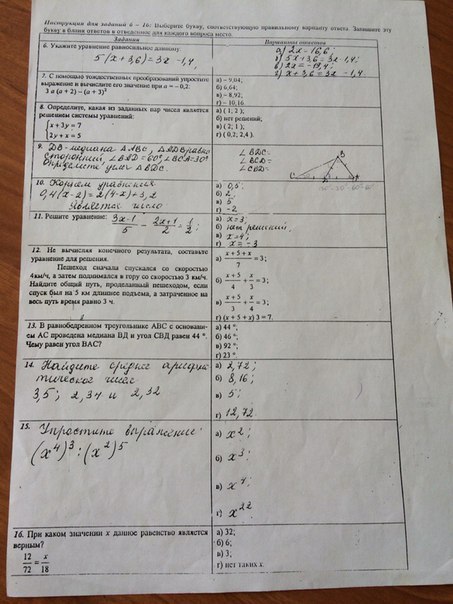 Инструкция для заданий 6 – 16: Выберите букву, соответствующую правильному варианту ответа. Запишите эту
букву в бланк ответов в отведенное для каждого вопроса место.
Задания
Варианты ответов
6. Укажите уравнение равносильное данному:
5(x+3,6)=3x-1,4
а) 2x=16,6;
б) 5x+3,6=3x-1,4;
в) 2x=-19,4;
г) x+3,6=3x-1,4
7. С помощью тождественных преобразований упростите
выражение и вычислите его значение при a = – 0,2:
3 a (a + 2) – (a + 3)²
а) – 9,04;
б) 6,64;
в) – 8,92;
г) – 10,16
8. Определите, какая из заданных пар чисел является
решением системы уравнений:
x + 3y = 7
2y + x = 5
а) ( 1; 2 );
б) нет решений;
в) ( 2; 1 );
г) ( 0,2; 2,4 ).
9. DB-медиана ΔABC, ΔADB равно
сторонний, ∠BAD=60°, ∠BCA=30°
определите углы ΔBDC.
∠BDC=
∠BCD=
∠CBD=
B
C
10. Корнем уравнения
0,4(x-2)=2(4-x)+3,2
является число
а) 0,5;
б) 2;
в) 5
г) -2
11. Решите уравнение: 3x-1/5 - 3x+1/2 = 1/2;
а) x=3;
б) нет решений;
в) x=4;
г) x=-3
12. Не вычисляя конечного результата, составьте
уравнение для решения.
Пешеход сначала спускался со скоростью
4км/ч, а затем поднимался в гору со скоростью 3 км/ч.
Найдите общий путь, проделанный пешеходом, если
спуск был на 5 км длиннее подъема, а затраченное на
весь путь время равно 3 ч.
а) x+5+x/7=3;
б) x+5/4+x/3=3;
в) x+5/3+x/4=3;
г) (x + 5 + x) 3 = 7.
13. В равнобедренном треугольнике ABC с основани-
ем AC проведена медиана ВД и угол СВД равен 44 °.
Чему равен угол BAC?
а) 44 °;
б) 46 °;
в) 92 °;
г) 23 °.
14. Найдите среднее арифме
тическое чисел
3,5; 2,34 и 2,32
а) 2,72;
б) 8,16;
в) 5;
г) 12,72.
15. Упростите выражение:
(x⁴)³:(x²)⁵
а) x²;
б) x³
в) x⁴;
г) x²²
16. При каком значении x данное равенство является
верным?
12/72 = x/18
а) 32;
б) 6;
в) 3;
г) нет таких x.